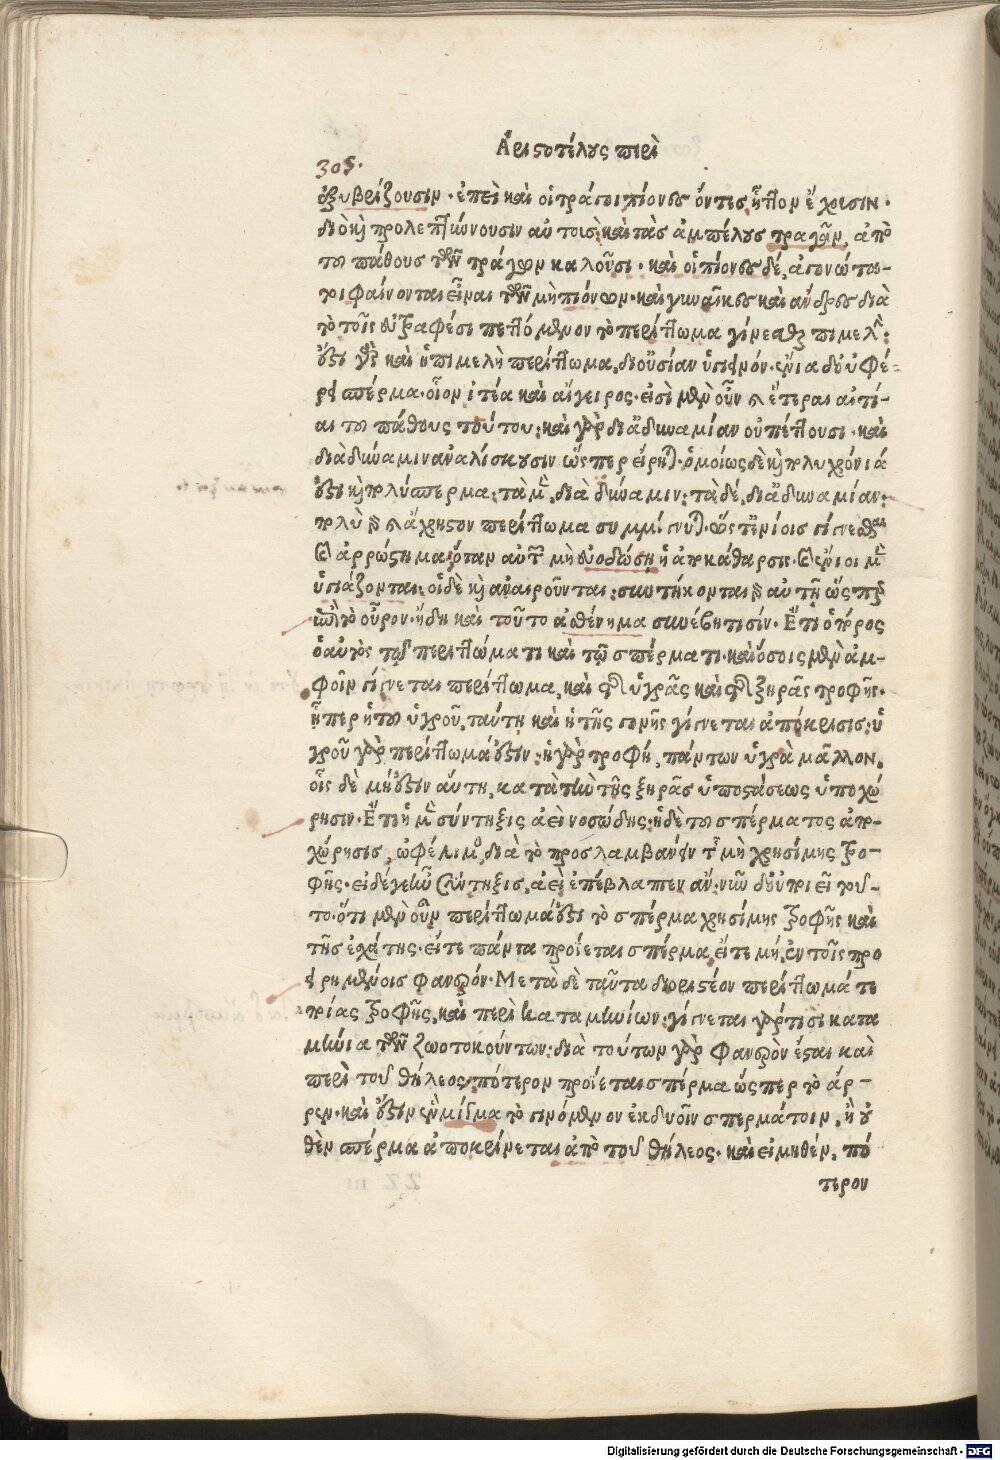 Ἀριστοτέλους περὶ
305.
ἐξυβρίζουσιν· ἐπεὶ καὶ οἱ τράγοι πίονες ὄντες ἧττον ἔχεισιν·
διὸ καὶ προλεπτύνουσιν αὐτοὺς καὶ τὰς ἀμπέλους τραγᾶν, ἀπὸ
τοῦ πάθους τῶν τράγων καλοῦσι· καὶ οἱ πίονες δὲ, ἀγονώτε-
ροι φαίνονται εἶναι τῶν μὴ πιόνων· καὶ γυναῖκες καὶ ἄνδρες διὰ
τὸ τοῖς εὐτραφέσι πεττόμενον τὸ περίττωμα γίνεσθαι πιμελήν:
ἔστι γὰρ καὶ ἡ πιμελὴ περίττωμα, δι᾽ οὐσίαν ὑγιεινόν· ἔνια δ᾽ οὐ φέ-
ρει σπέρμα· οἷον ἰτέα καὶ αἴγειρος· εἰσὶ μὲν οὖν καὶ ἕτεραι αἰτί-
αι τοῦ πάθους τούτου: καὶ γὰρ δι᾽ ἀδυναμίαν οὐ πέττουσι· καὶ
διὰ δύναμιν ἀναλίσκουσιν ὥσπερ εἴρηται· ὁμοίως δὲ καὶ πολυχόνιά
ἔστι καὶ πολύσπερμα: τὰ μὲν, διὰ δύναμιν: τὰ δὲ, δι᾽ ἀδυναμίαν:
πολὺ γὰρ καὶ ἄχρηστον περίττωμα συμμίγνυται· ὥστ᾽ ἐνίοις γίγνεσθαι
καὶ ἀρρώστημα, ὅταν αὐτῶν μὴ εὐοδώσῃ ἡ ἀποκάθαρσις· καὶ ἔνιοι μὲν
ὑγιάζονται: οἱ δὲ καὶ ἀναιροῦνται: συντήκονται γὰρ αὐτῇ ὥσπερ
εἰς τὸ οὖρον· ἤδη καὶ τοῦτο ἀσθένημα συνέβη τισίν· Ἔτι ὁ πόρος
ὁ αὐτὸς τῷ περιττώματι καὶ τῷ σπέρματι· καὶ ὅσοις μὲν ἀμ-
φοῖν γίγνεται περίττωμα, καὶ τῆς ὑγρᾶς καὶ τῆς ξηρᾶς τροφῆς·
ᾗπερ ἡ τοῦ ὑγροῦ, ταύτῃ καὶ ἡ τῆς γονῆς γίγνεται ἀπόκρισις: ὑ
γροῦ γὰρ περίττωμά ἐστιν: ἡ γὰρ τροφή, πάντων ὑγρὰ μᾶλλον,
οἷς δὲ μή ἐστιν αὕτη, κατὰ τὴν τῆς ξηρᾶς ὑποστάσεως ὑποχώ
ρησιν· Ἔτι ἡ μὲν σύντηξις ἀεὶ νοσώδης: ἡ δὲ τοῦ σπέρματος ἀπο-
χώρησις, ὠφέλιμος, διὰ τὸ προσλαμβάνειν τῆς μὴ χρησίμης τρο-
φῆς· εἰ δέ γ᾽ ἦν σύντηξις, ἀεὶ ἐπέβλαπεν ἄν: νῦν δ᾽ οὐ ποιεῖ τοῦ-
το· ὅτι μὲν οὖν περίττωμά ἐστι τὸ σπέρμα χρησίμης τροφῆς καὶ
τῆς ἐσχάτης· εἴτε πάντα προΐεται σπέρμα, εἴτε μή, ἐν τοῖς προ
ειρημένοις φανερόν· Μετὰ δὲ ταῦτα διοριστέον περίττωμά τε
ποίας τροφῆς, καὶ περὶ καταμηνίων: γίγνεται γάρ τισι κατα
μήνια τῶν ζωοτοκούντων: διὰ τούτων γὰρ φανερὸν ἔσται καὶ
περὶ τοῦ θήλεος, πότερον προΐεται σπέρμα ὥσπερ τὸ ἄρ-
ρεν· καὶ ἔστιν ἓν μίγμα τὸ γινόμενον ἐκ δυοῖν σπερμάτοιν, ἢ οὐ
θὲν σπέρμα ἀποκρίνεται ἀπὸ τοῦ θήλεος· καὶ εἰ μηθέν, πό
τερον
Digitalisierung gefördert durch die Deutsche Forschungsgemeinschaft - DFG